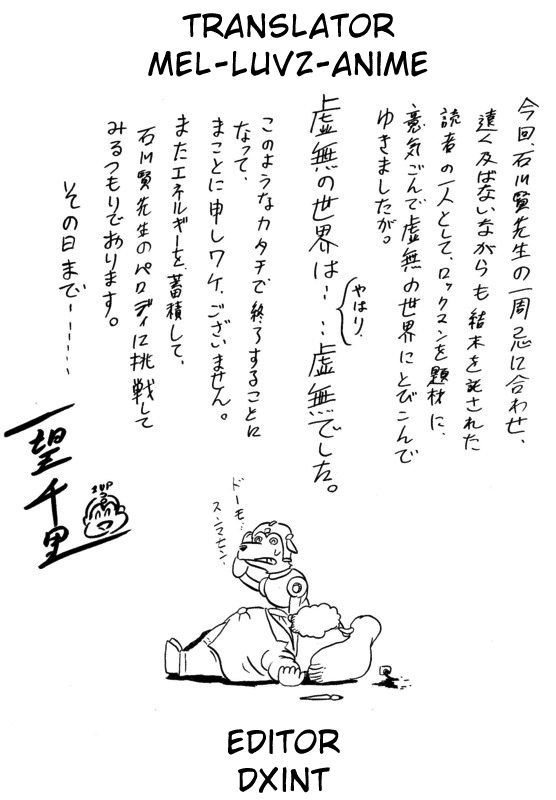 TRANSLATOR
MEL-LUVZ-ANIME
今回、石川賢先生の一周忌に合わせ、
遠く及ばないながらも結末を託された
読者の一人として、ロックマンを題材に、
意気ごんで虚無の世界にとびこんで
ゆきましたが。
虚無の世界は・・・虚無でした。
やはり、
このようなカタチで終了することに
なって、
まことに申しワケございません。
またエネルギーを蓄積して、
石川賢先生のパロディに挑戦して
みるつもりであります。
その日まで・・・・・・
一望千里
1UP
ドーモ…
スンマセン、
EDITOR
DXINT